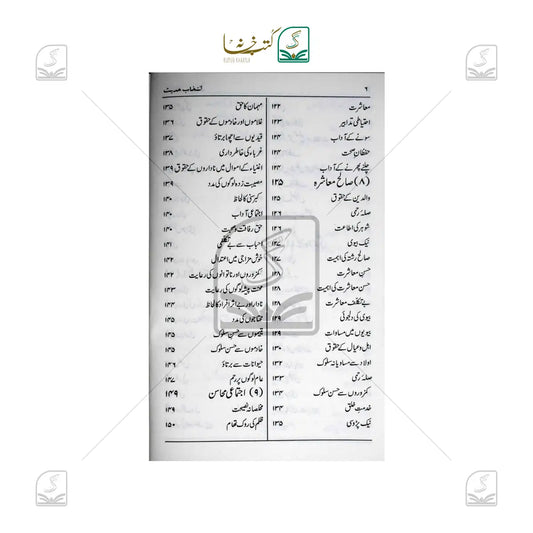 کتب خانہ
۶
انتخاب حدیث
معاشرت ۱۲۲
احتیاطی تدابیر ۱۲۳
سونے کے آداب ۱۲۳
حفظانِ صحت ۱۲۳
چلنے پھرنے کے آداب ۱۲۴
(۸) صالح معاشرہ ۱۲۵
والدین کے حقوق ۱۲۵
صلہ رحمی ۱۲۶
شوہر کی اطاعت ۱۲۶
نیک بیوی ۱۲۷
صالح رشتے کی اہمیت ۱۲۷
حسن معاشرت ۱۲۸
حسن معاشرت کی اہمیت ۱۲۸
بے تکلف معاشرت ۱۲۸
بیوی کی دلجوئی ۱۲۹
بیویوں میں مساوات ۱۲۹
اہل و عیال کے حقوق ۱۳۰
اولاد سے مساویانہ سلوک
صلہ رحمی ۱۳۳
کمزوروں سے حسن سلوک ۱۳۴
خدمتِ خلق ۱۳۴
نیک پڑوسی ۱۳۵
مہمان کا حق ۱۳۵
غلاموں اور خادموں کے حقوق ۱۳۶
قیدیوں سے اچھا برتاؤ ۱۳۷
غرباء کی خاطر داری ۱۳۸
اغنیاء کے اموال میں ناداروں کے حقوق ۱۳۹
مصیبت زدہ لوگوں کی مدد ۱۳۹
کبر سنی کا لحاظ
اجتماعی آداب
حق رفاقت و صحبت
احباب سے بے تکلفی
خوش مزاجی میں اعتدال
کمزوروں اور ناتوانوں کی رعایت
محنت پیشہ لوگوں کی رعایت
نادار اور بے اثر افراد کا لحاظ
محتاجوں کی مدد
یتیموں سے حسن سلوک
خادموں سے حسن سلوک
حیوانات سے برتاؤ
عام لوگوں پر رحم
(۹) اجتماعی محاسن ۱۴۹
مخلصانہ نصیحت
ظلم کی روک تھام ۱۵۰